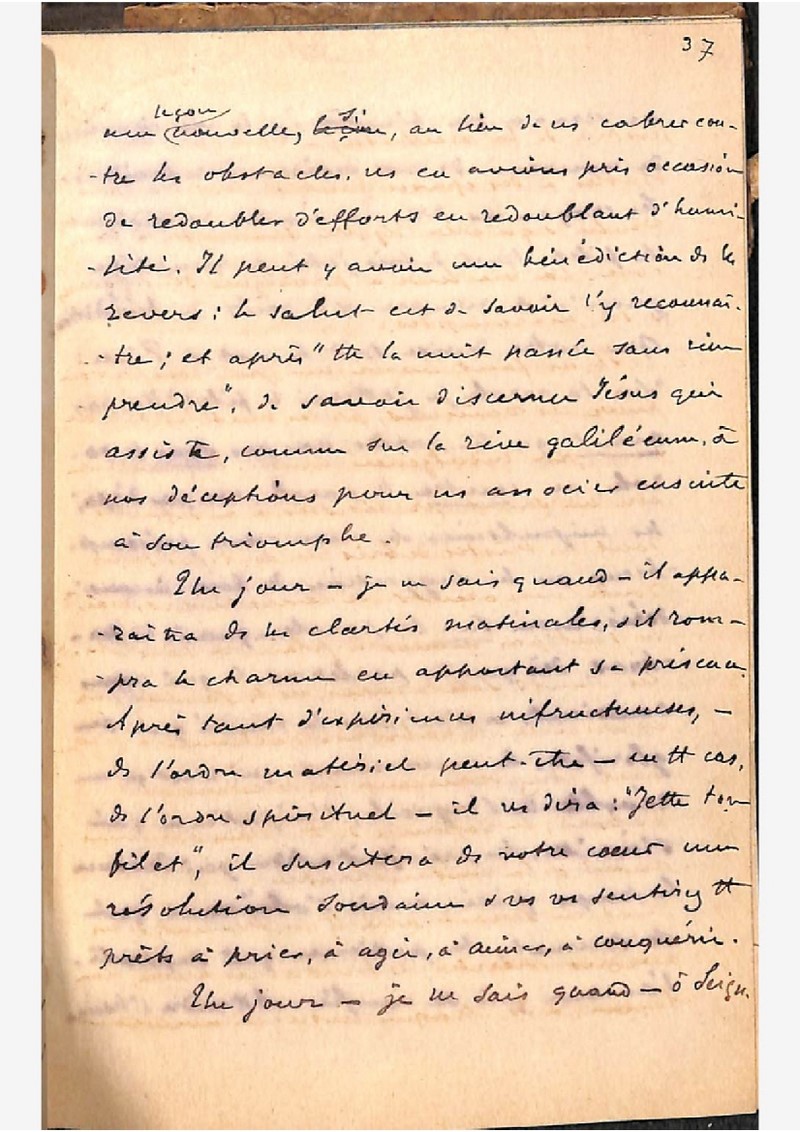 37
leçon
une nouvelle, leçon, si, au lieu de ns cabrer con-
-tre les obstacles, ns en avions pris occasion
de redoubler d'efforts en redoublant d'humi-
-lité. Il peut y avoir une bénédiction ds les
revers ; le salut est de savoir l'y reconnaî-
-tre ; et après "tte la nuit passée sans rien
prendre", de savoir discerner Jésus qui
assiste, comme sur la rive galiléenne, à
nos déceptions pour ns associer ensuite
à son triomphe.
Un jour – je ne sais quand – il appa-
-raîtra ds les clartés matinales, s'il rom-
-pra le charme en apportant sa présence.
Après tant d'expériences infructueuses, –
ds l'ordre matériel peut-être – en tt cas,
ds l'ordre spirituel – il ns dira : "Jette ton
filet", il suscitera ds votre cœur une
résolution soudaine & vs vs sentirez tt
prêts à prier, à agir, à aimer, à conquérir.
Un jour – je ne sais quand – ô Seign.